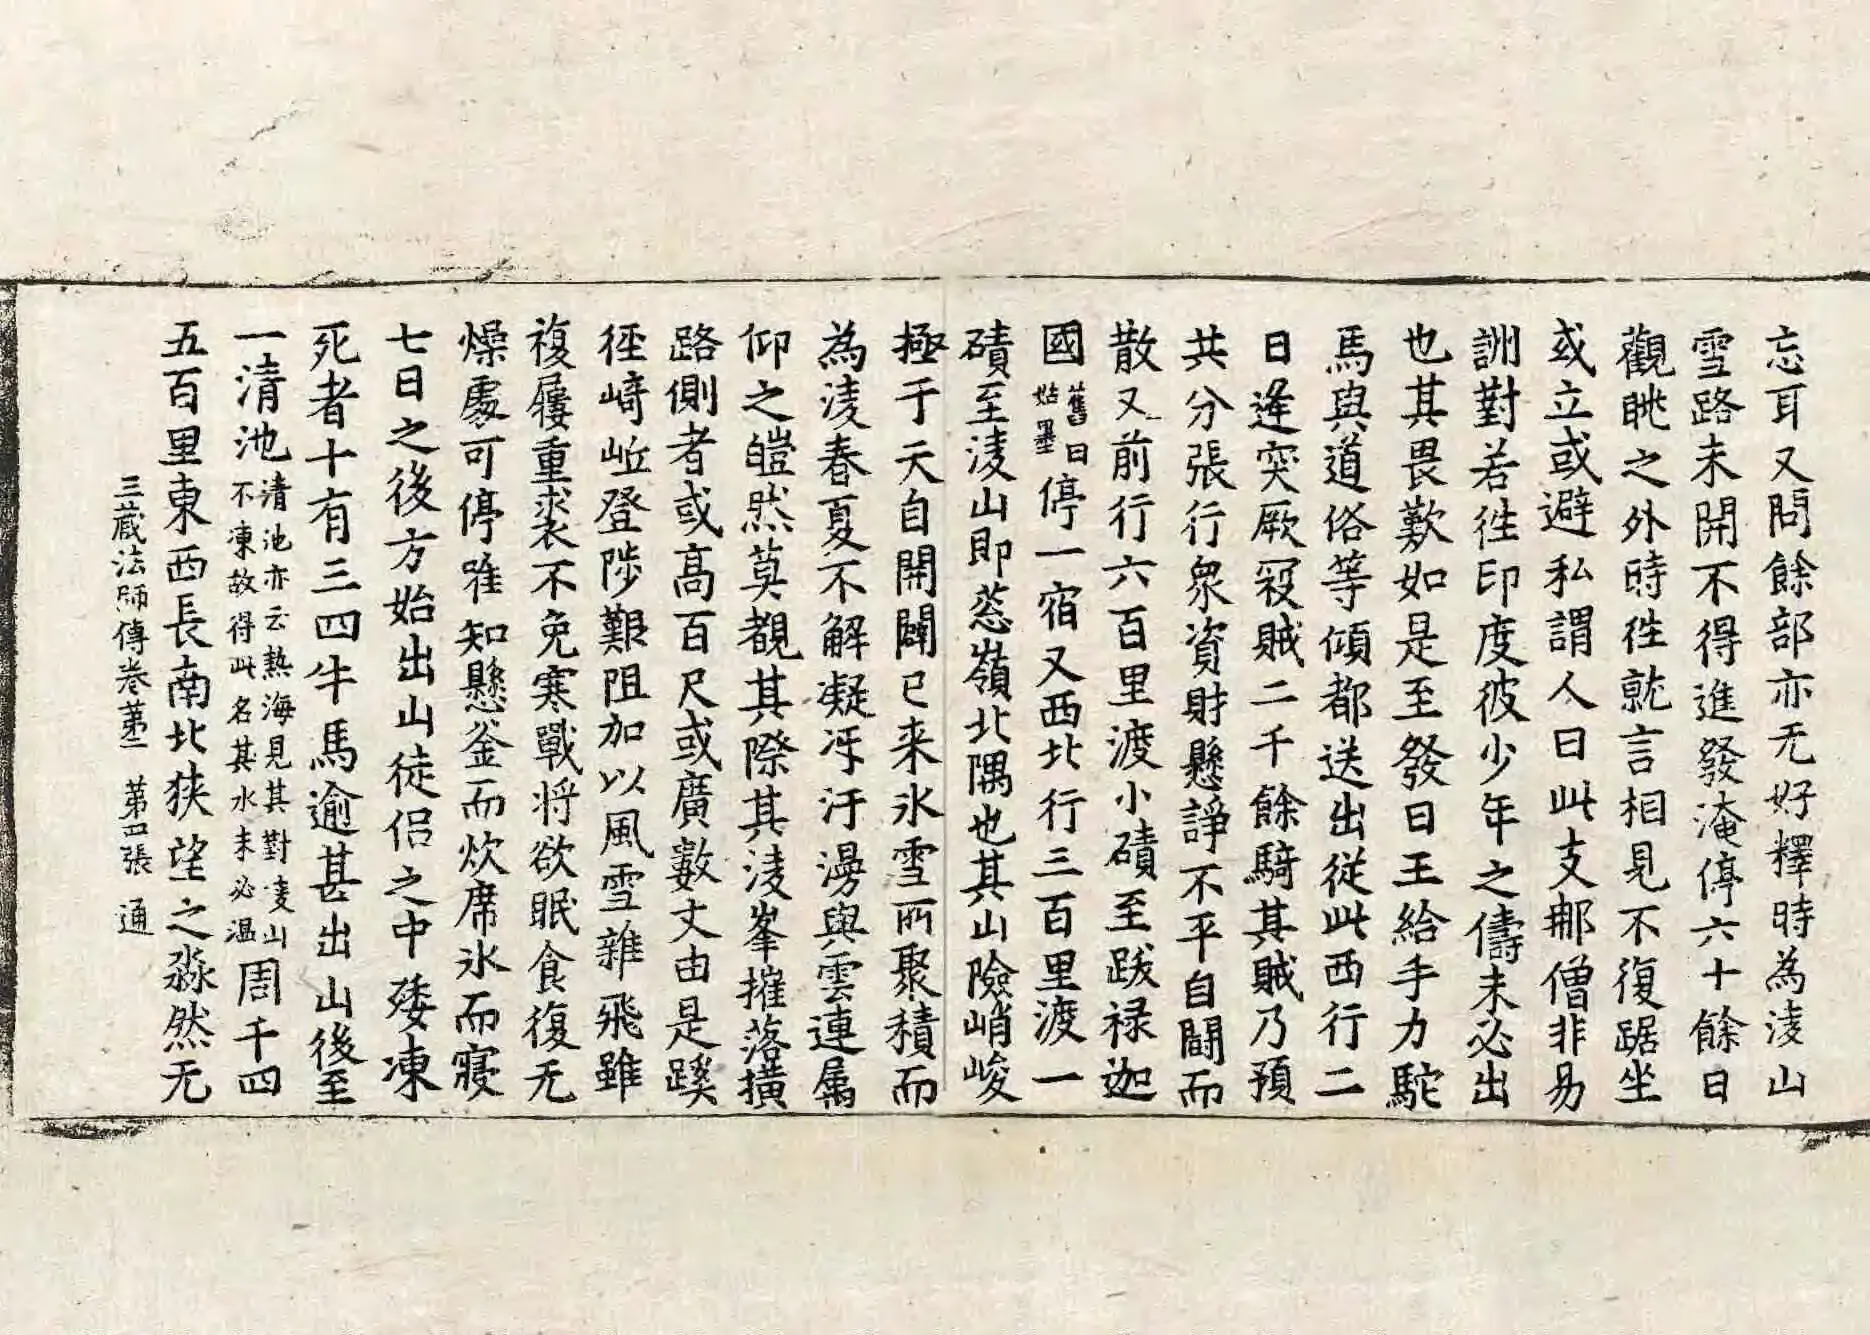 忘耳又問餘部亦无好釋時為淩山
雪路未開不得進發淹停六十餘日
觀眺之外時徃就言相見不復踞坐
或立或避私謂人曰此支那僧非易
詶對若徃印度彼少年之儔未必出
也其畏歎如是至發日王給手力駝
馬與道俗等傾都送出從此西行二
日逢突厥寇賊二千餘騎其賊乃預
共分張行衆資財懸諍不平自鬭而
散又前行六百里渡小磧至跋祿迦
國舊曰姑墨停一宿又西北行三百里渡一
磧至淩山即葱嶺北隅也其山險峭峻
極于天自開闢已来氷雪所聚積而
為淩春夏不解凝沍汗漫與雲連属
仰之皚然莫覩其際其淩峯摧落橫
路側者或高百尺或廣數丈由是蹊
徑崎岖登陟艱阻加以風雪雜飛雖
複屨重裘不免寒戰将欲眠食復无
燥處可停唯知懸釜而炊席氷而寢
七日之後方始出山徒侣之中殘凍
死者十有三四牛馬逾甚出山後至
一清池清池亦云熱海見其對凌山不凍故得此名其水未必温周千四
五百里東西長南北狹望之淼然无
三藏法師傳卷苐二 第四張 通